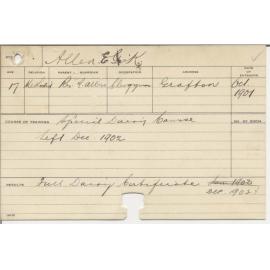 Allen E. G. K.
AGE RELIGION PARENT OR GUARDIAN OCCUPATION ADDRESS
17 Methodist Rev. G. Allen Clergyman Grafton Oct. 1901
COURSE OF TRAINING Special Dairy Course
Left Dec. 1902
RESULTS Full Dairy Certificate Jan. 1902
Dec. 1902
NOTE